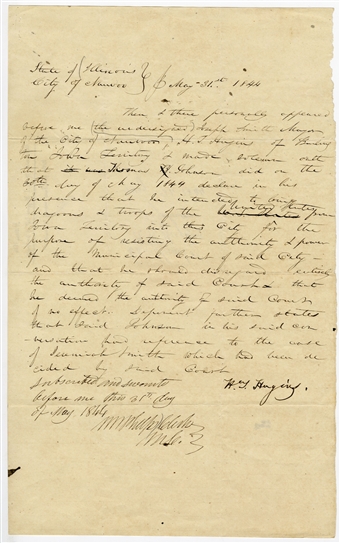 State of Illinois
City of Nauvoo } May 31st 1844
Then & there personally appeared
before me (the undersigned) Joseph Smith Mayor
of the City of Nauvoo, H. T. Hugins of
the Iowa Territory & made solemn oath
that Thomas Johnson did on the
30th day of May 1844 declare in his
presence that he intended to
dragoons & troops of the United States from
Iowa Territory into this City for the
purpose of resisting the authority & power
of the Municipal Court of said City—
and that he should disregard entirely
the authority of said Court & that
he deemed the authority of said Court
of no effect. Deponent further states
that said Johnson in his said con
versation had reference to the case
of Jeremiah Smith which had been de
cided by said Court
Subscribed and sworn to
before me this 31st day
of May 1844
H. T. Hugins.
Clerk